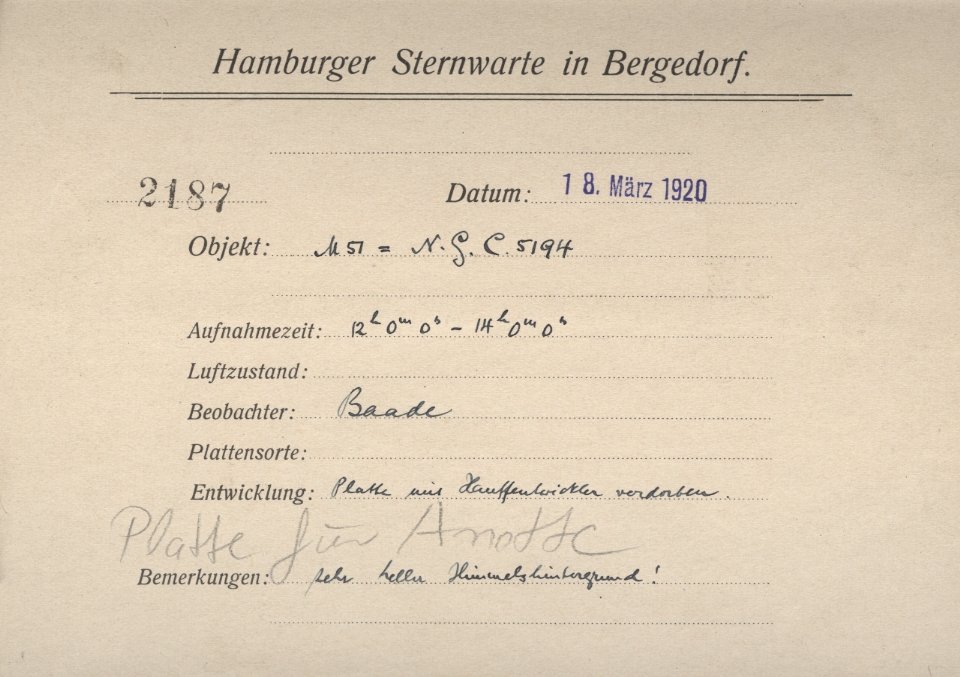 Hamburger Sternwarte in Bergedorf.
2187 Datum: 18. März 1920
Objekt: M 51 = N. G. C. 5194
Aufnahmezeit: 12h 0m 0s – 14h 0m 0s
Luftzustand:
Beobachter: Baade
Plattensorte:
Entwicklung: Platte mit Hauffentwickler verdorben.
Platte für
Bemerkungen: sehr heller Himmelshintergrund!